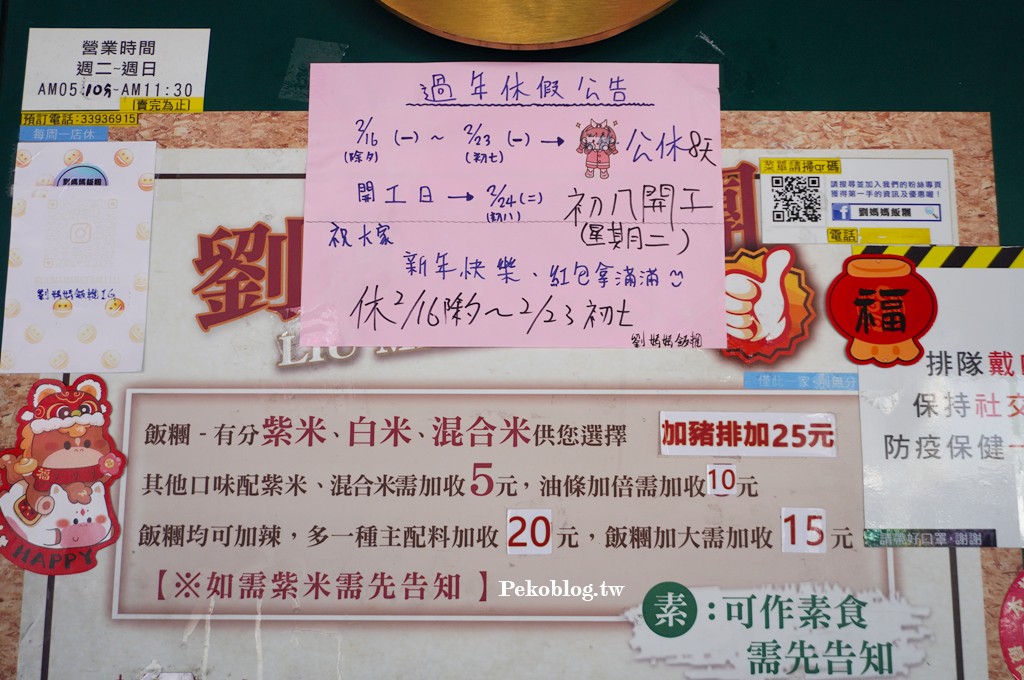 營業時間
週二~週日
AM05:10分~AM11:30
[賣完為止]
預訂電話:33936915
每周一店休
劉媽媽飯糰
劉媽媽飯糰IG
過年休假公告
2/16 (一) ~ 2/23 (一) → 公休8天
(除夕) (初七)
開工日 → 2/24(二) 初八開工
(初八) (星期二)
祝大家
新年快樂、紅包拿滿滿
休2/16除夕~2/23初七
劉媽媽飯糰
菜單請掃qr碼
請搜尋並加入我們的粉絲專頁
獲得第一手的資訊及優惠喔!
f 劉媽媽飯糰
電話
劉
福
僅此一家·別無分
排隊戴
保持社交
防疫保健
請戴好口罩,謝謝
飯糰-有分紫米、白米、混合米供您選擇
加豬排加25元
其他口味配紫米、混合米需加收5元,油條加倍需加收10元
飯糰均可加辣,多一種主配料加收20元,飯糰加大需加收15元
【※如需紫米需先告知】
素:可作素食
需先告知
HAPPY
Pekoblog.tw